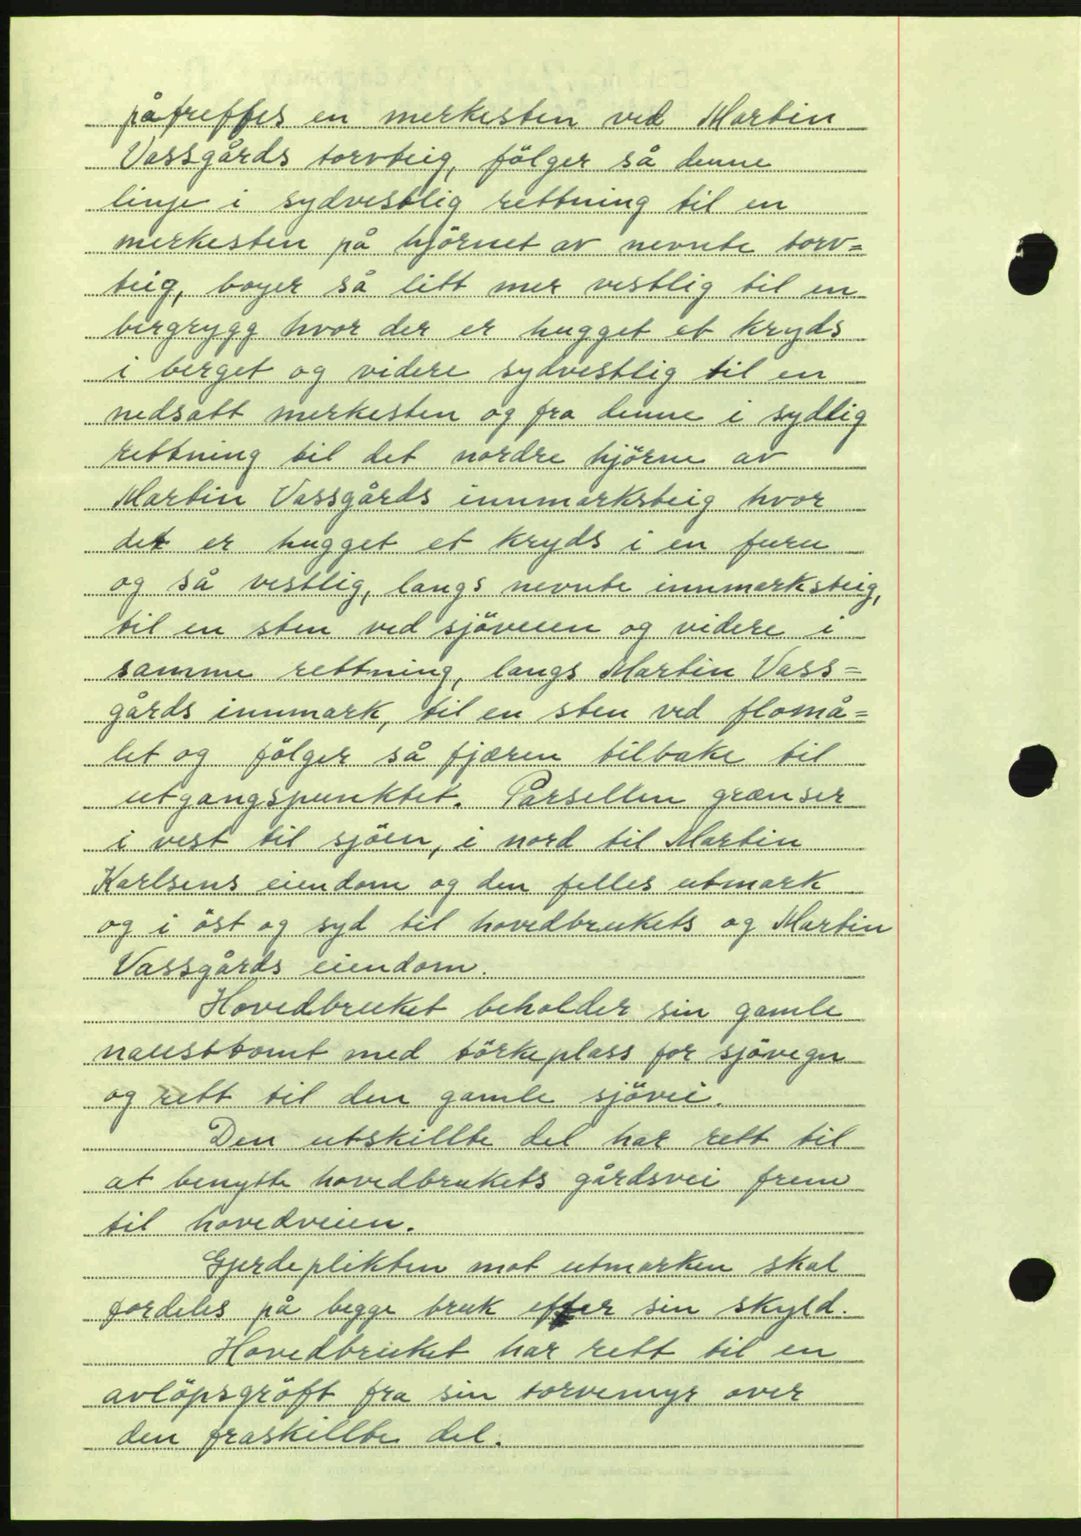 påtreffes en merkesten ved Martin
Vassgårds torvteig, fölger så denne
linje i sydvestlig rettning til en
merkesten på hjörnet av nevnte torv=
teig, boyer så litt mer vestlig til en
bergrygg hvor der er hugget et kryds
i berget og videre sydvestlig til en
nedsatt merkesten og fra denne i sydlig
rettning til det nordre hjörne av
Martin Vassgårds innmarksteig hvor
det er hugget et kryds i en furu
og så vestlig, langs nevnte innmarksteig,
til en sten ved sjöveien og videre i
samme rettning, langs Martin Vass=
gårds innmark, til en sten ved flomå=
let og fölger så fjæren tilbake til
utgangspunktet. Parsellen grænser
i vest til sjöen, i nord til Martin
Karlsens eiendom og den felles utmark
og i öst og syd til hovedbrukets og Martin
Vassgårds eiendom.
Hovedbruket beholder sin gamle
nausttomt med törkeplass for sjövegn
og rett til den gamle sjövei.
Den utskillte del har rett til
at benytte hovedbrukets gårdsvei frem
til hovedveien.
Gjerdeplikten mot utmarken skal
fordeles på begge bruk efter sin skyld.
Hovedbruket har rett til en
avlöpsgröft fra sin torvemyr over
den fraskillte del.